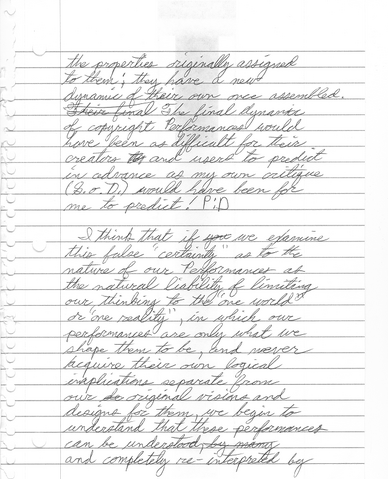 the properties originally assigned
to them; they have a new
dynamic of their own once assembled.
Their final The final dynamics
of copyright Performances would
have been as difficult for their
creators and users to predict
in advance as my own critique
(G.o.D.) would have been for
me to predict! P:D
I think that if you we examine
this false "certainty" as to the
nature of our Performances as
the natural liability of limiting
our thinking to the "one world"
or "one reality", in which our
performances are only what we
shape them to be, and never
acquire their own logical
implications separate from
our original visions and
designs for them, we begin to
understand that these performances
can be understood, by many
and completely re-interpreted by